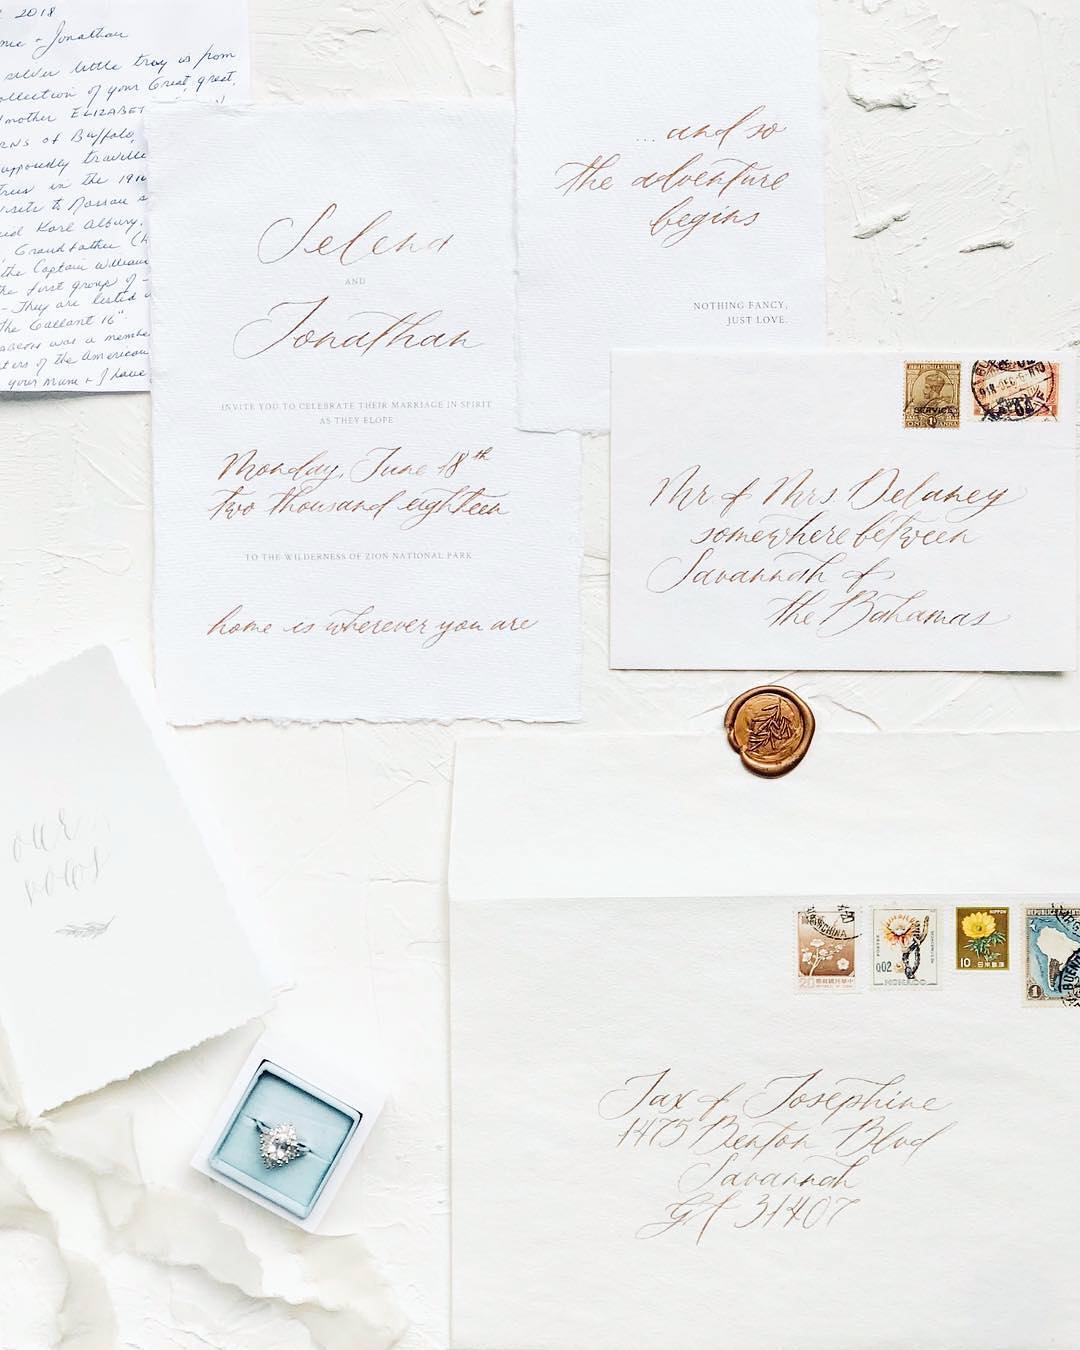 2018
Jonathan
silver little tray is from
collection of your Great, great,
mother
of Buffalo,
supposedly
in the
to Nassau
Karl Albury.
Grandfather
the Captain William
the first group of -
- They are listed
The Gallant 16".
was a
of the American
your Mum & I have
Selena
AND
Jonathan
INVITE YOU TO CELEBRATE THEIR MARRIAGE IN SPIRIT
AS THEY ELOPE
Monday, June 18th
two thousand eighteen
TO THE WILDERNESS OF ZION NATIONAL PARK
home is wherever you are
...and so
the adventure
begins
NOTHING FANCY,
JUST LOVE.
SERVICE
Mr & Mrs Delaney
somewhere between
Savannah &
the Bahamas
our
vows
20
中華民國郵票
0,02
MONACO
NIPPON
10 日本郵便
1
Jax & Josephine
1475 Benton Blvd
Savannah
GA 31407